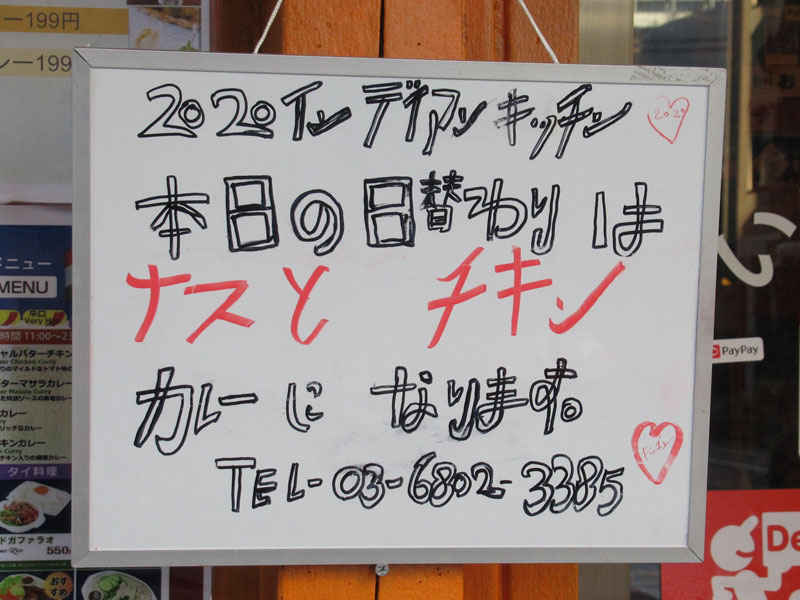 ー199円
レー199
2020インディアンキッチン
2020
本日の日替わりは
ナスと チキン
カレーに なります。
TEL-03-6802-3385
メニュー
MENU
辛口
時間 11:00～23
チキンカレー
タイ料理
ドガファラオ
550
おすすめ
い
PayPay
De